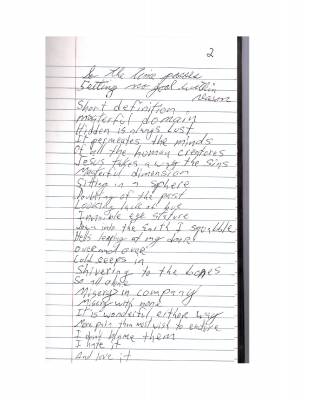 2
So the time passes
Setting no goal within
reason
Short definition
masterful domain
Hidden is always Lust
It permeates the minds
Of all the human creatures
Jesus takes away the sins
Masterful dimension
Sitting in a sphere
Doubting of the past
Looking back at
Invisible eye stature
Down into the Earth I squabble
Hells leaping at my door
over and over
Cold ceeps in
Shivering to the bones
So all alone
Misery in company
Misery with none
It is wonderful, either way
More pain than most wish to endure
I don't blame them
I hate it
And love it